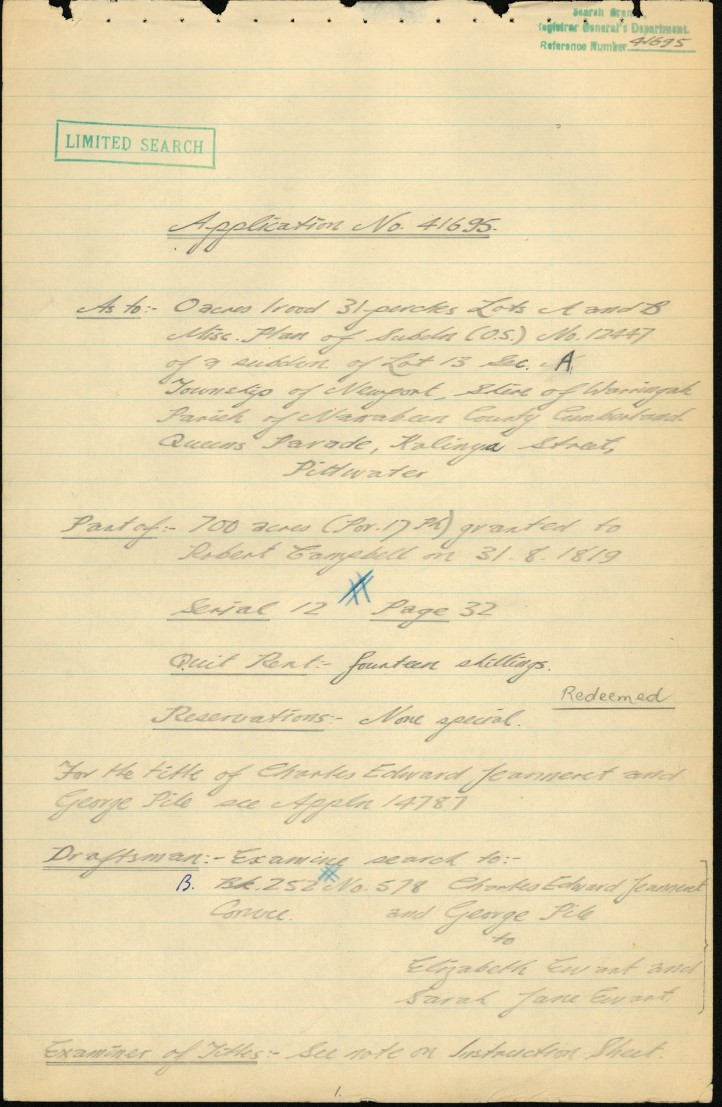 Search Branch,
Registrar General's Department.
Reference Number 41695
LIMITED SEARCH
Application No. 41695.
As to:- 0 acres 1 rood 31 perches Lots A and B
Misc. Plan of Subdn (O.S.) No. 12447
of a subdvn. of Lot 13 Sec. A
Township of Newport, Shire of Warringah
Parish of Narrabeen County Cumberland.
Queens Parade, Kalinya Street,
Pittwater
Part of:- 700 acres (Por. 17 Ph) granted to
Robert Campbell on 31. 8. 1819
Serial 12 Page 32
Quit Rent:- fourteen shillings.
Redeemed
Reservations:- None special.
For the title of Charles Edward Jeanneret and
George Pile see Appln 14787
Draftsman:- Examine search to:-
B. Bk. 252 No. 578 Charles Edward Jeanneret
Convce. and George Pile
to
Elizabeth Ewart and
Sarah Jane Ewart.
Examiner of Titles:- See note on Instruction Sheet.
1.